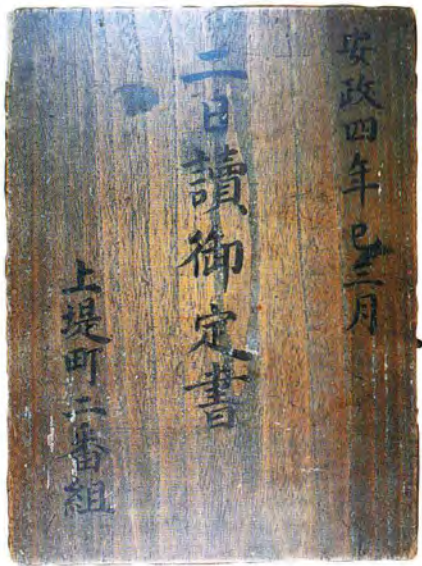 安政四年巳三月
二日讀御定書
上堤町二番組